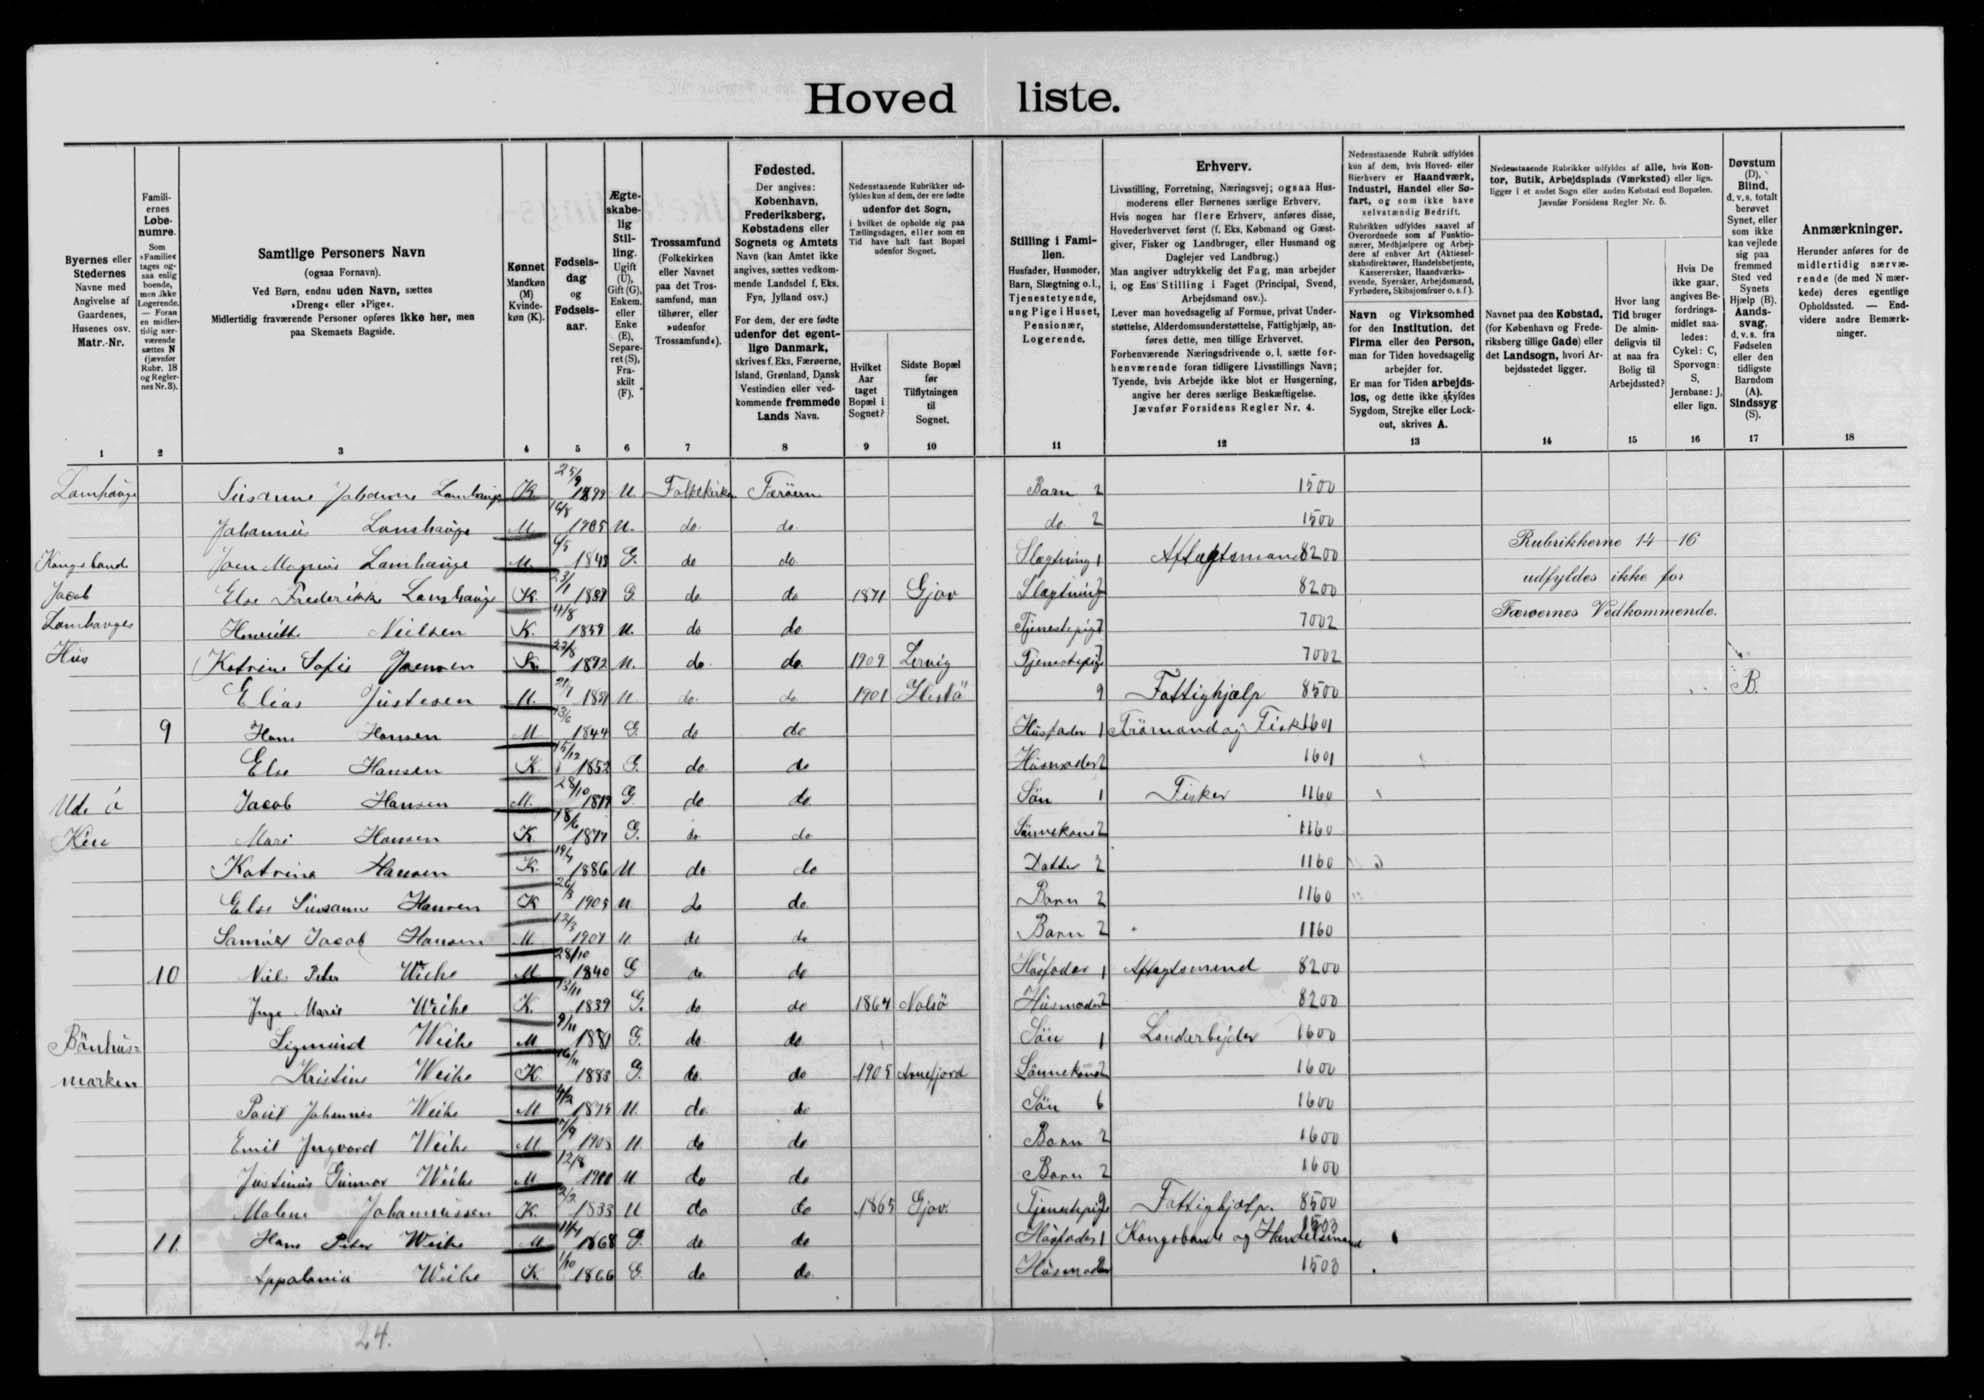 Hoved liste.
Byernes eller Stedernes Navne med Angivelse af Gaardenes, Husenes osv. Matr.-Nr.
Familiernes Løbenumre. Som »Familie« tages ogsaa enlig boende, men ikke Logerende. — Foran en midlertidig nærværende sættes N (jævnfør Rubr. 18 og Reglernes Nr. 3).
Samtlige Personers Navn (ogsaa Fornavn). Ved Børn, endnu uden Navn, sættes »Dreng« eller »Pige«. Midlertidig fraværende Personer opføres ikke her, men paa Skemaets Bagside.
Kønnet Mandkøn (M) Kvindekøn (K).
Fødselsdag og Fødselsaar.
Ægteskabelig Stilling. Ugift (U), Gift (G), Enkem. eller Enke (E), Separeret (S), Fraskilt (F).
Trossamfund (Folkekirken eller Navnet paa det Trossamfund, man tilhører, eller »udenfor Trossamfund«).
Fødested. Der angives: København, Frederiksberg, Købstadens eller Sognets og Amtets Navn (kan Amtet ikke angives, sættes vedkommende Landsdel f. Eks. Fyn, Jylland osv.) For dem, der ere fødte udenfor det egentlige Danmark, skrives f. Eks. Færøerne, Island, Grønland, Dansk Vestindien eller vedkommende fremmede Lands Navn.
Nedenstaaende Rubrikker udfyldes kun af dem, der ere fødte udenfor det Sogn, i hvilket de opholde sig paa Tællingsdagen, eller som en Tid have haft fast Bopæl udenfor Sognet.
Hvilket Aar taget Bopæl i Sognet?
Sidste Bopæl før Tilflytningen til Sognet.
Stilling i Familien. Husfader, Husmoder, Barn, Slægtning o. l., Tjenestetyende, ung Pige i Huset, Pensionær, Logerende.
Erhverv. Livsstilling, Forretning, Næringsvej; ogsaa Husmoderens eller Børnenes særlige Erhverv. Hvis nogen har flere Erhverv, anføres disse, Hovederhvervet først (f. Eks. Købmand og Gæstgiver, Fisker og Landbruger, eller Husmand og Daglejer ved Landbrug.) Man angiver udtrykkelig det Fag, man arbejder i, og Ens Stilling i Faget (Principal, Svend, Arbejdsmand osv.). Lever man hovedsagelig af Formue, privat Understøttelse, Alderdomsunderstøttelse, Fattighjælp, anføres dette, men tillige Erhvervet. Forhenværende Næringsdrivende o. l. sætte forhenværende foran tidligere Livsstillings Navn; Tyende, hvis Arbejde ikke blot er Husgerning, angive her deres særlige Beskæftigelse. Jævnfør Forsidens Regler Nr. 4.
Nedenstaaende Rubrik udfyldes kun af dem, hvis Hoved- eller Bierhverv er Haandværk, Industri, Handel eller Søfart, og som ikke have selvstændig Bedrift. Rubrikken udfyldes saavel af Overordnede som af Funktionærer, Medhjælpere og Arbejdere af enhver Art (Aktieselskabsdirektører, Handelsbetjente, Kasserersker, Haandværkssvende, Syersker, Arbejdsmænd, Fyrbødere, Skibsjomfruer o. s. f.). Navn og Virksomhed for den Institution, det Firma eller den Person, man for Tiden hovedsagelig arbejder for. Er man for Tiden arbejdsløs, og dette ikke skyldes Sygdom, Strejke eller Lockout, skrives A.
Nedenstaaende Rubrikker udfyldes af alle, hvis Kontor, Butik, Arbejdsplads (Værksted) eller lign. ligger i et andet Sogn eller anden Købstad end Bopælen. Jævnfør Forsidens Regler Nr. 5.
Navnet paa den Købstad, (for København og Frederiksberg tillige Gade) eller det Landsogn, hvori Arbejdsstedet ligger.
Hvor lang Tid bruger De almindeligvis til at naa fra Bolig til Arbejdssted?
Hvis De ikke gaar, angives Befordringsmidlet saaledes: Cykel: C, Sporvogn: S, Jernbane: J, eller lign.
Døvstum (D), Blind, d. v. s. totalt berøvet Synet, eller som ikke kan vejlede sig paa fremmed Sted ved Synets Hjælp (B). Aandssvag, d. v. s. fra Fødselen eller den tidligste Barndom (A). Sindssyg (S).
Anmærkninger. Herunder anføres for de midlertidig nærværende (de med N mærkede) deres egentlige Opholdssted. — Endvidere andre Bemærkninger.
1 2 3 4 5 6 7 8 9 10 11 12 13 14 15 16 17 18
Lamhauge Susanne Jahanne Lamhauge K 25/9 1899 U. Folkekirken Færöern Barn 2 1500
Johannes Lamhauge M 16/8 1905 U. do do do 2 1500
Kongsbonde Joen Magnus Lamhauge M. 6/5 1843 G. do do Slægtning 1 Aftægtsmand 8200
Jacob Else Frederikke Lamhauge K. G. do do 1871 Gjov Slægtning 2 8200
Lamhauges Henriette Neilsen K. 4/8 U. do do Tjenestepige 7002
Hus Katrine Sofie Joensen K. 1892 U. do do 1909 Lervig Tjenestepige 7002
Elias Justesen M. U do do 1901 9 Fattighjælp 8500 B.
9 Hans Hansen M 13/6 1844 G. do do Husfader 1 1601
Else Hansen K 15/12 1852 G. do do Husmoder 2 1601
Ude á Jacob Hansen M. 28/10 G. do do Sön 1 Fisker 1160
Mari Hansen K. 18/6 G. do do Sönnekone 2 1160
Katrina Hansen K. 1886 U do do Datter 2 1160
Else Susanne Hansen K U do do Barn 2 1160
Samuel Jacob Hansen M. U do do Barn 2 1160
10 Niels Peter Weihe M 28/10 1840 G do do Husfader 1 Aftægtsmand 8200
Inge Marie Weihe K. 13/11 1839 G. do do 1864 Nolsö Husmoder 2 8200
Bönhus= Sigmund Weihe M 9/11 1881 G. do do Sön 1 Landarbejder 1600
marken Kristine Weihe K. 16/11 1883 G. do do 1905 Arnefjord Sönnekone 2 1600
Poul Johannes Weihe M 4/2 1875 U. do do Sön 6 1600
Emil Jngvard Weihe M U. do do Barn 2 1600
Justinus Gunnar Weihe M 12/8 U do do Barn 2 1600
Malene Johannessen K. 2/2 1833 U do do 1865 Gjov. Tjenestepige Fattighjælp. 8500
11. Hans Peter Weihe M 11/4 1868 G. do do Husfader 1 Kongsbonde og Handelsmand 1503
Appolonia Weihe K 1/10 1866 G do do Husmoder 2 1503
Rubrikkerne 14–16
udfyldes ikke for
Færøernes Vedkommende.
24.